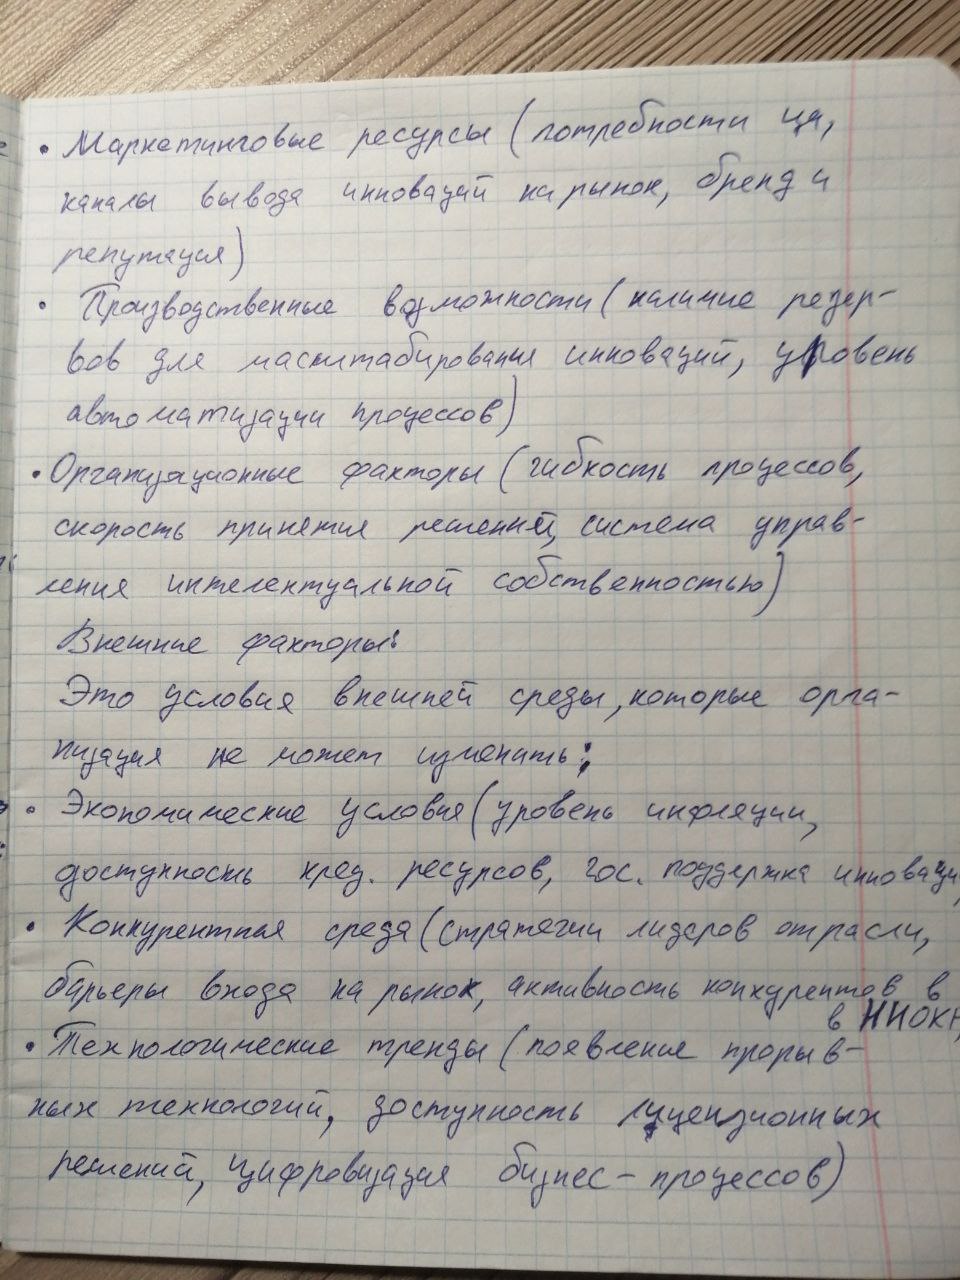 • Маркетинговые ресурсы (потребности ца,
каналы вывода инноваций на рынок, бренд и
репутация)
• Производственные возможности (наличие резер-
вов для масштабирования инноваций, уровень
автоматизации процессов)
• Организационные факторы (гибкость процессов,
скорость принятия решений, система управ-
ления интелектуальной собственностью)
Внешние факторы:
Это условия внешней среды, которые орга-
низация не может изменить:
• Экономические условия (уровень инфляции,
доступность кред. ресурсов, гос. поддержка инноваци
• Конкурентная среда (стратегии лидеров отрасли,
барьеры входа на рынок, активность конкурентов в
в НИОКР
• Технологические тренды (появление прорыв-
ных технологий, доступность лицензионных
решений, цифровизация бизнес-процессов)